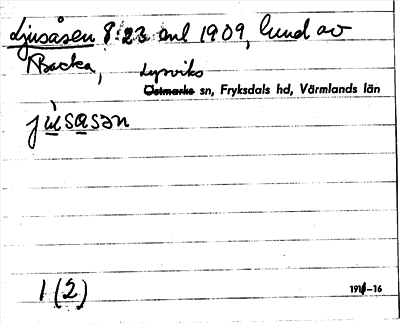 Ljusåsen 8:23 enl 1909, lund av
Backa,
Lysviks
Östmarks sn, Fryksdals hd, Värmlands län
jùsasən
1 (2)
1911-16